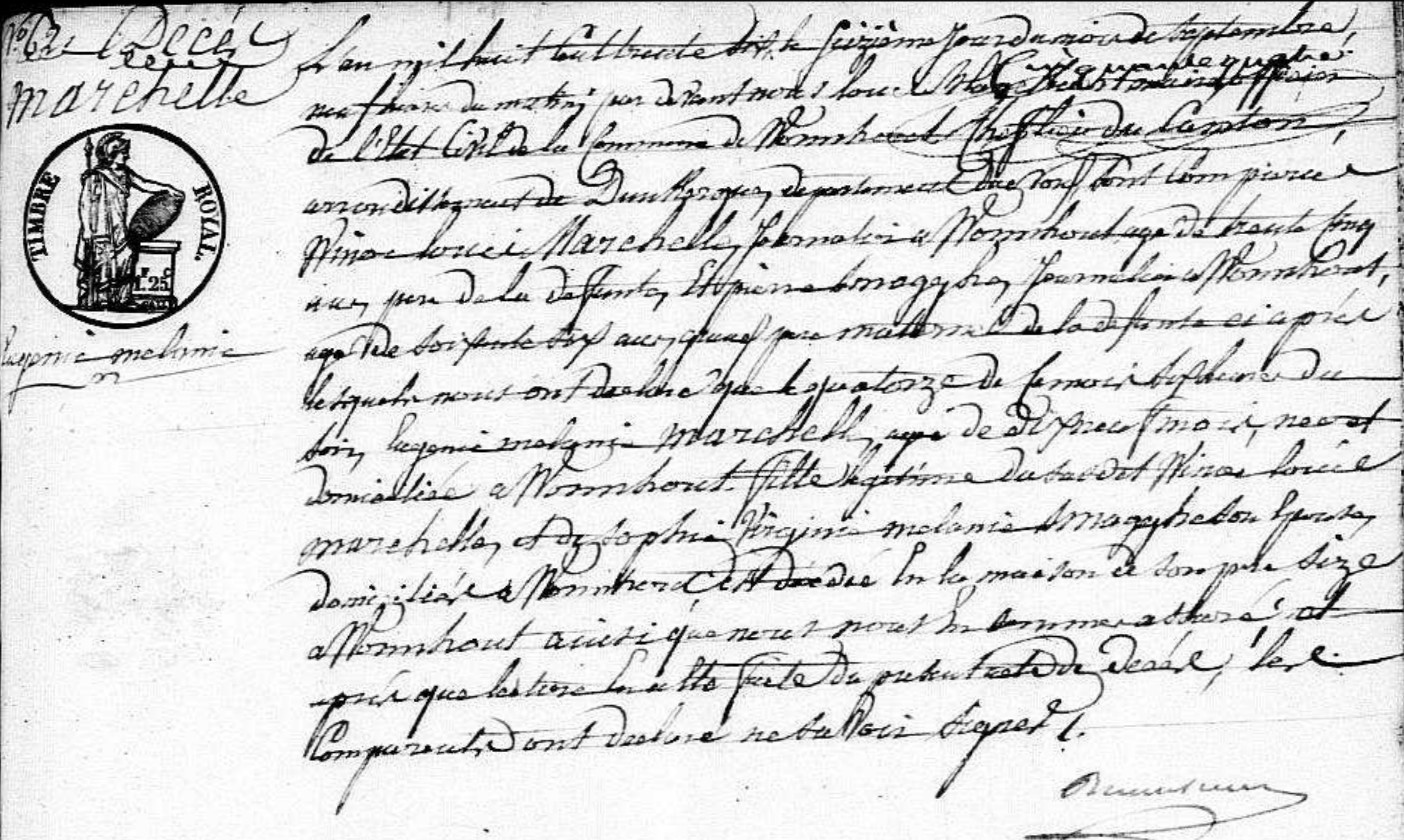 No. 62 Décès
Marchelle
TIMBRE ROYAL.
1.25
Eugenie melanie
L'an mil huit Cent trente dix, le seizième jour du mois de septembre,
neuf heures du matin, par devant nous Louis
de l'Etat Civil de la Commune de Wormhout Cheflieu du Canton,
arrondissement de Dunkerque, departement du Nord, sont Comparus
Winoc Louis Marchelle, Journalier a Wormhout, agé de trente Cinq
ans, pere de la defunte, Et pierre Smagghe, Journalier a Wormhout,
agé de soixante six ans, grand pere maternel de la defunte ci après
lesquels nous ont declaré que le quatorze de ce mois heures du
soir, Eugenie melanie Marchelle, agé de dix neuf mois, née et
domiciliée a Wormhout fille légitime du susdit Winoc Louis
marchelle, et de Sophie Virginie melanie Smagghe son Epouse,
domiciliés a Wormhout, est décédée En la maison de son pere size
a Wormhout ainsi que nous nous En sommes assuré, et
après que lecture En a été faite du present acte de décès, les
Comparants ont declaré ne savoir signer.